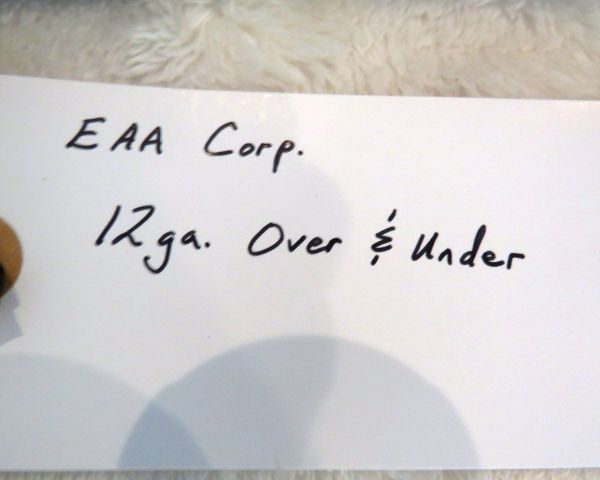 EAA Corp.
12ga. Over & Under